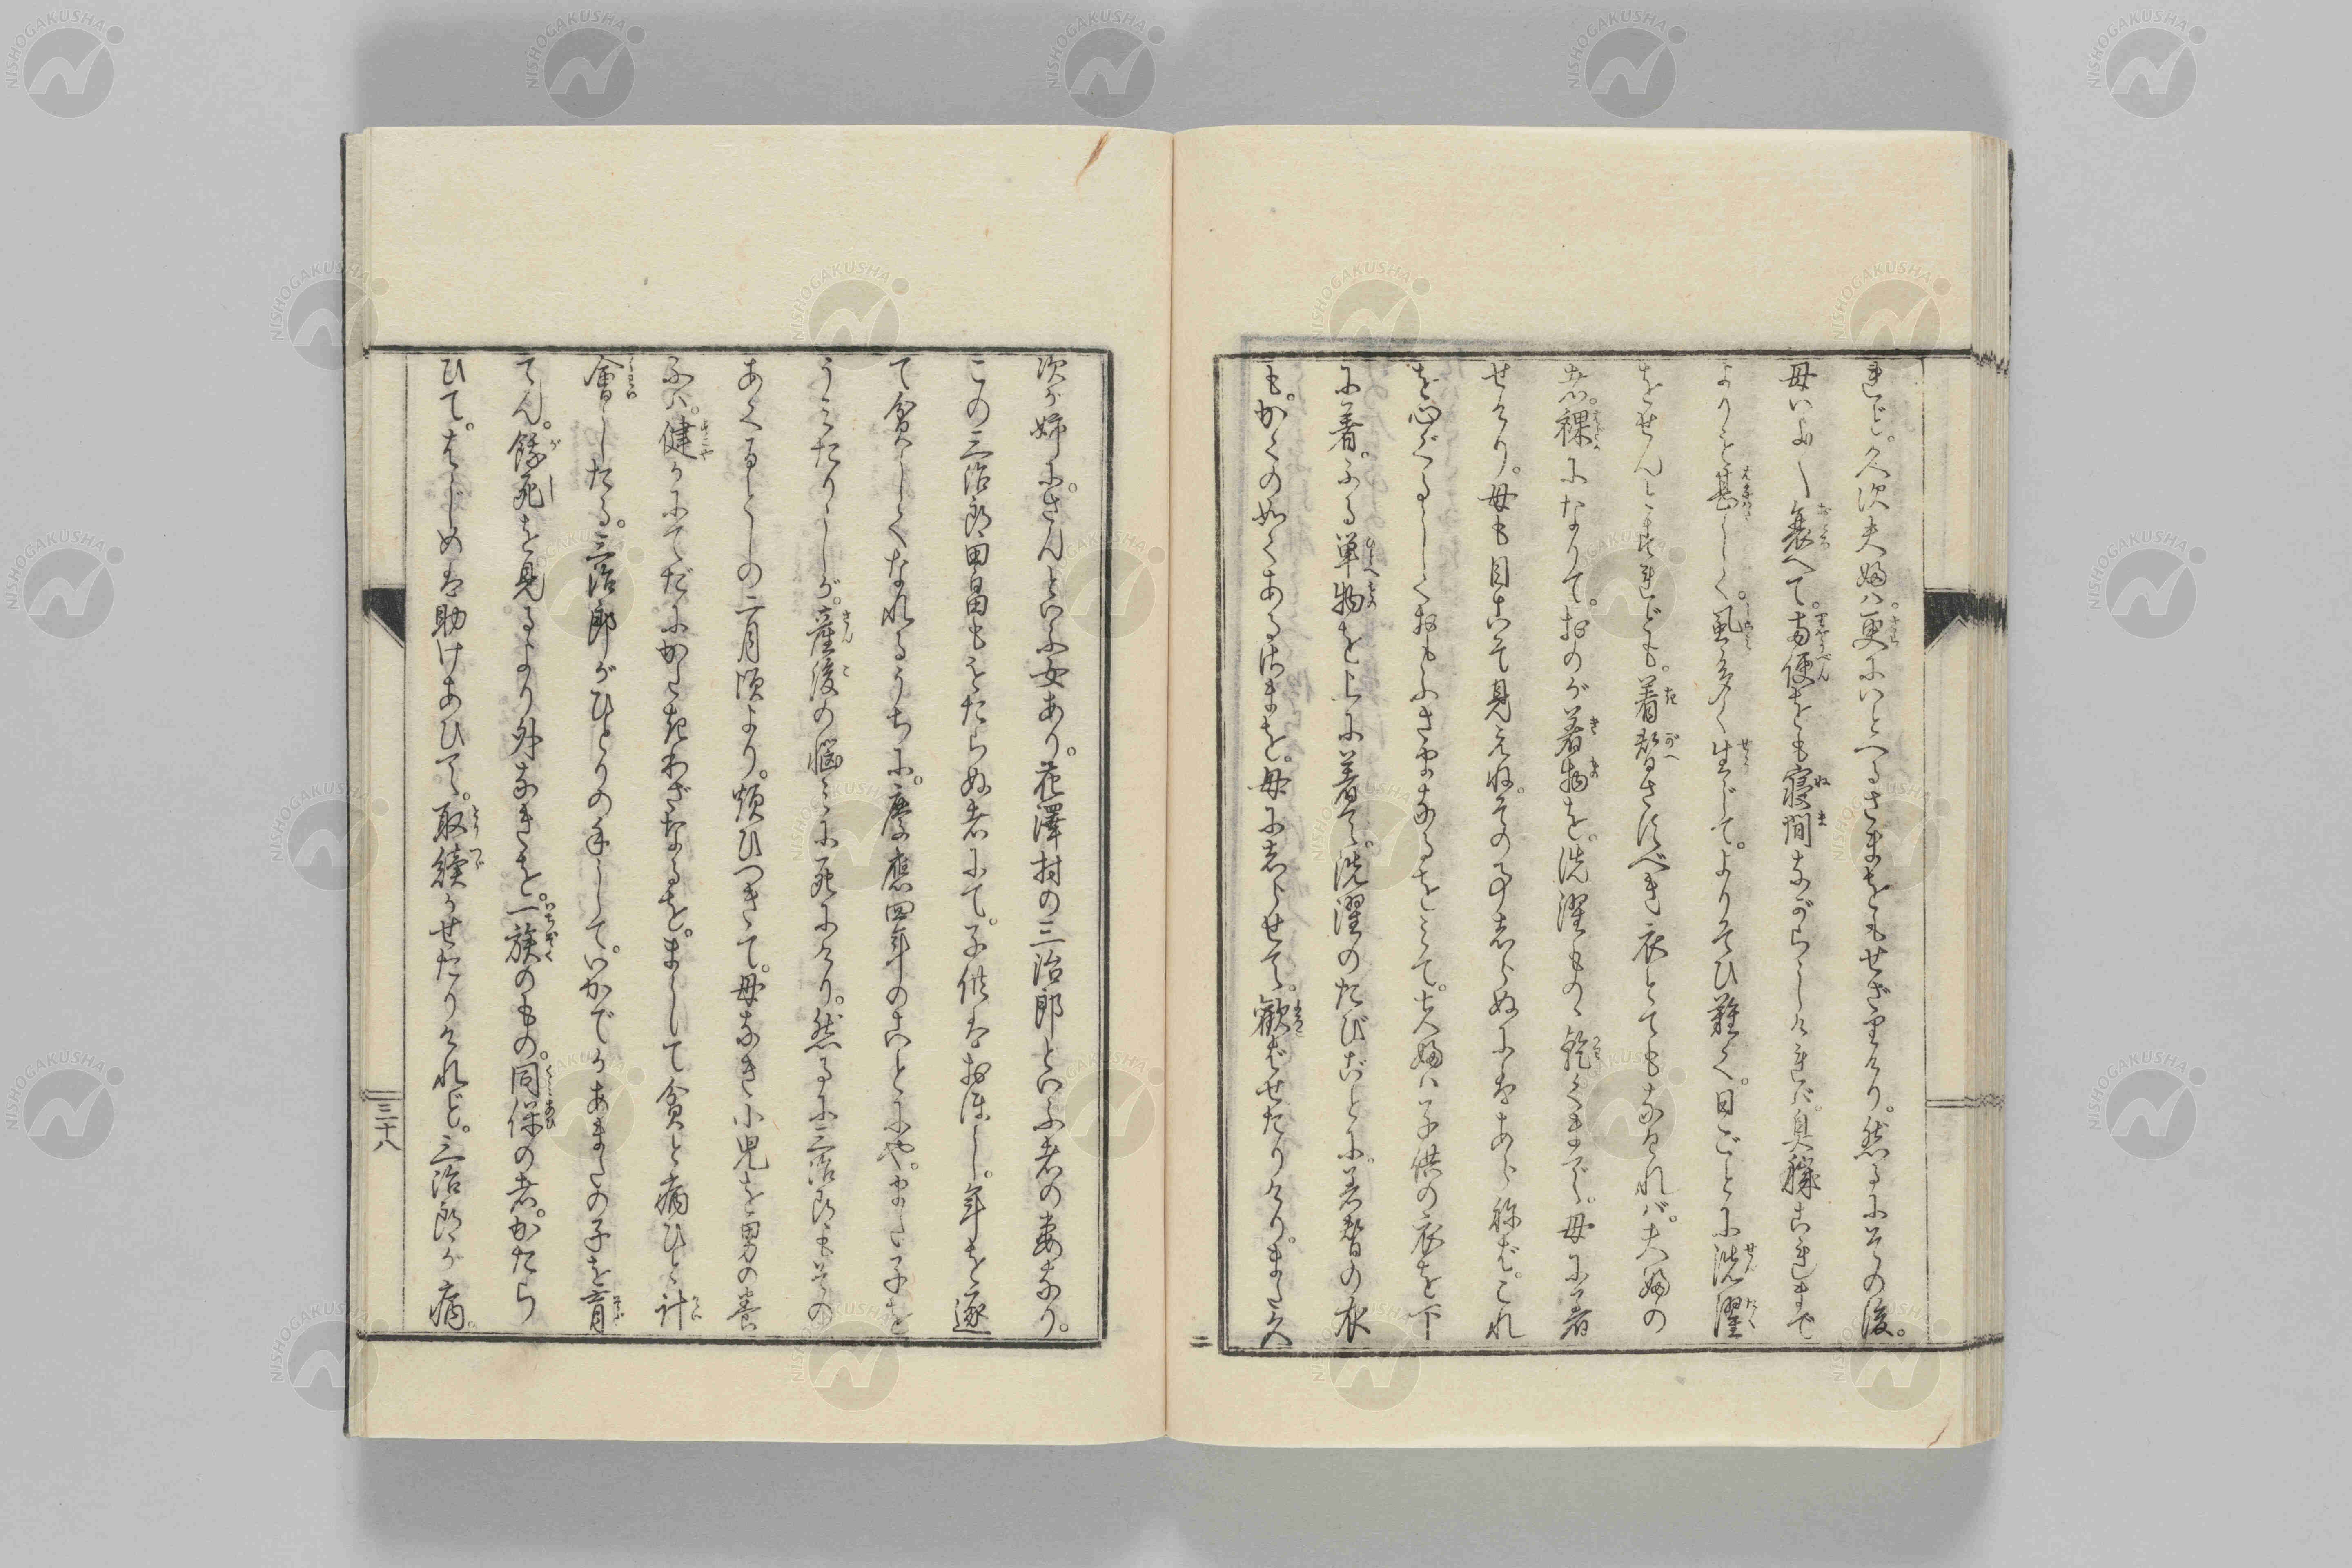 れど。久次夫婦ハ。更にいとへるさまをもせざりけり。然るにその後。
母いよ〱衰へて。両便をも寝間ながらしけれバ。臭穢これまで
よりも甚しく。虱多く生じて。よりそひ難く。日ごとに洗濯
をせんとすれども。着替さすべき衣とてもなけれバ。夫婦の
者。裸になりて。おのが着物を。洗濯もの丶乾くまで。母に着
せけり。母も目こそ見えね。その事志らぬにハあらねば。これ
を心ぐるしくおもふさまなるをミて。夫婦ハ子供の衣を下
に着。ふる単物を上に着て。洗濯のたびごとに。着替の衣
も。かくの如くあるさまを。母に志らせて。歓ばせたりけり。また久
次が姉に。さんといふ女あり。花澤村の三治郎といふ者の妻なり。
この三治郎田畠もをたらぬ者にて。子供ハおほし。年を逐
て貧しくなれるうちに。慶應四年のことにや。また子を
うミたりしが。産後の悩ミに死にけり。然るに三治郎もその
あくるとしの二月頃より。煩ひつきて。母なき小児を男の養
ふハ。健かにてだにかたきわざなるを。まして貧と病ひと計
會したる。三治郎がひとりの手して。いかでかあまたの子を育
てん。餓死を見るより外なきを。一族のもの。同保の者。かたら
ひて。はじめハ助けあひて。取續かせたりけれど。三治郎が病。
三十八
二
NISHOGAKUSHA